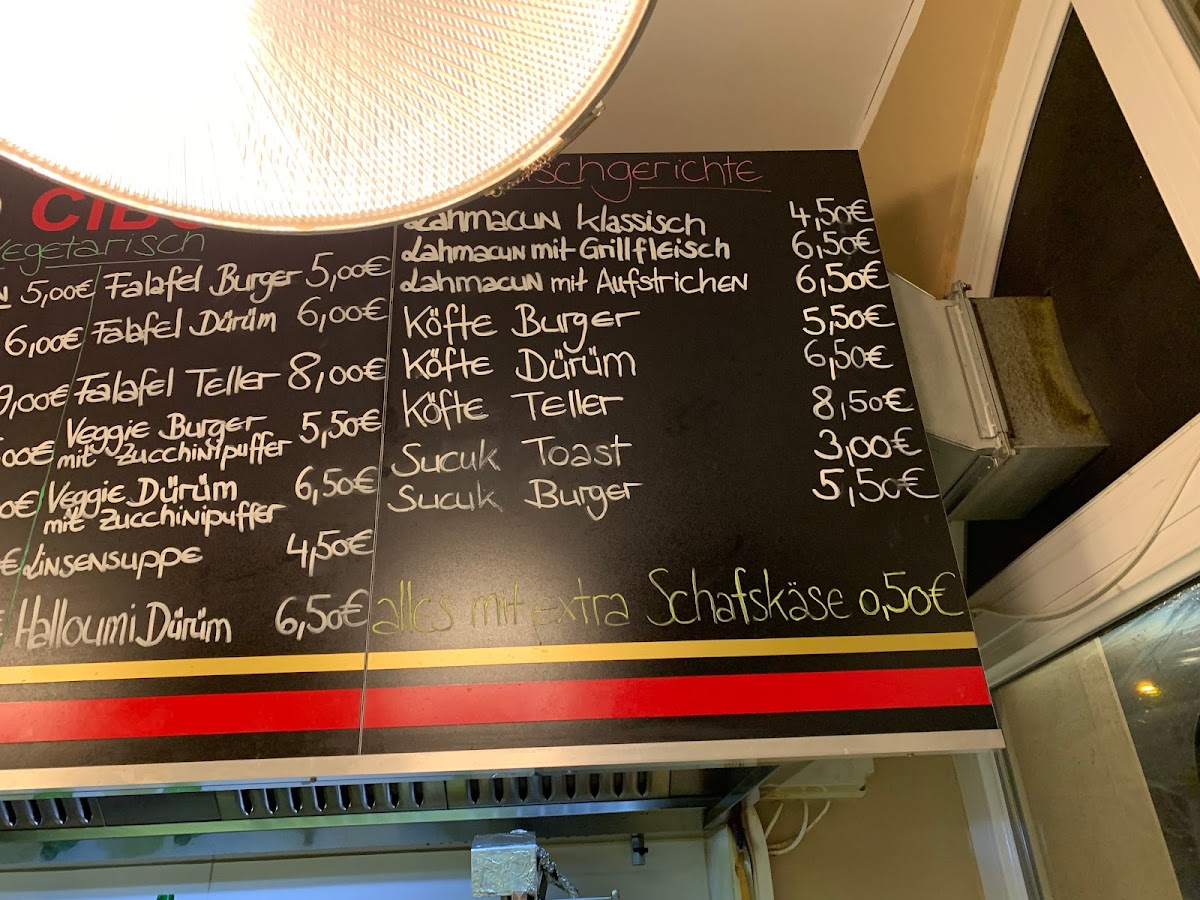 Vegetarisch
5,00€ Falafel Burger 5,00€
6,00€ Falafel Dürüm 6,00€
9,00€ Falafel Teller 8,00€
Veggie Burger 5,50€
mit Zucchinipuffer
Veggie Dürüm 6,50€
mit Zucchinipuffer
Linsensuppe 4,50€
Halloumi Dürüm 6,50€
Lahmacun klassisch 4,50€
Lahmacun mit Grillfleisch 6,50€
Lahmacun mit Aufstrichen 6,50€
Köfte Burger 5,50€
Köfte Dürüm 6,50€
Köfte Teller 8,50€
Sucuk Toast 3,00€
Sucuk Burger 5,50€
alles mit extra Schafskäse 0,50€